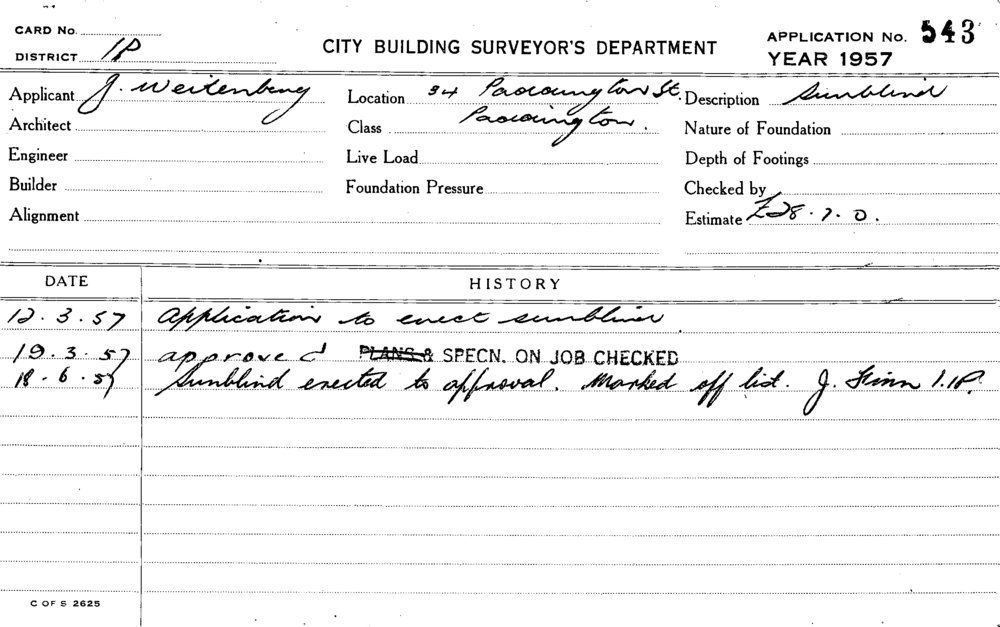 CARD No.
DISTRICT 1P
CITY BUILDING SURVEYOR'S DEPARTMENT
APPLICATION No. 543
YEAR 1957
Applicant J. Weitenberg
Location 34 Paddington St.
Paddington.
Description Sunblind
Architect
Class
Nature of Foundation
Engineer
Live Load
Depth of Footings
Builder
Foundation Pressure
Checked by
Alignment
Estimate £28.7.0.
DATE HISTORY
12.3.57 Application to erect sunblind
19.3.57 approved PLANS & SPECN. ON JOB CHECKED
18.6.57 Sunblind erected to approval. Marked off list. J. Finn 1.1P.
C OF S 2625